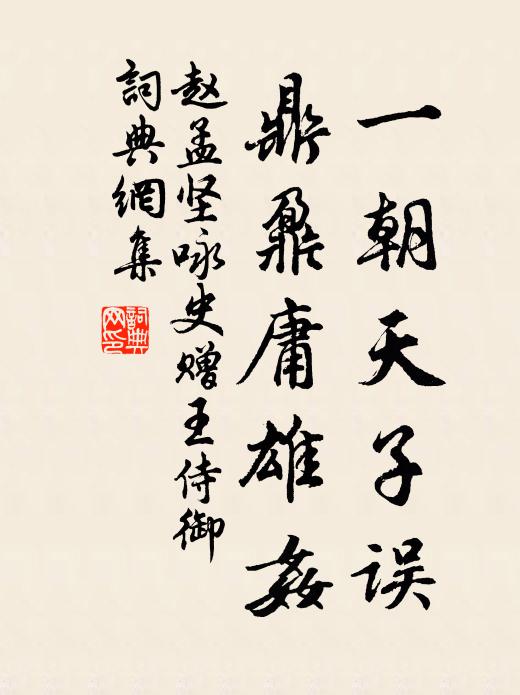 一朝天子误
鼎鼐庸雄姦
赵孟坚咏史赠王侍御
詞典網集
詞典
网印